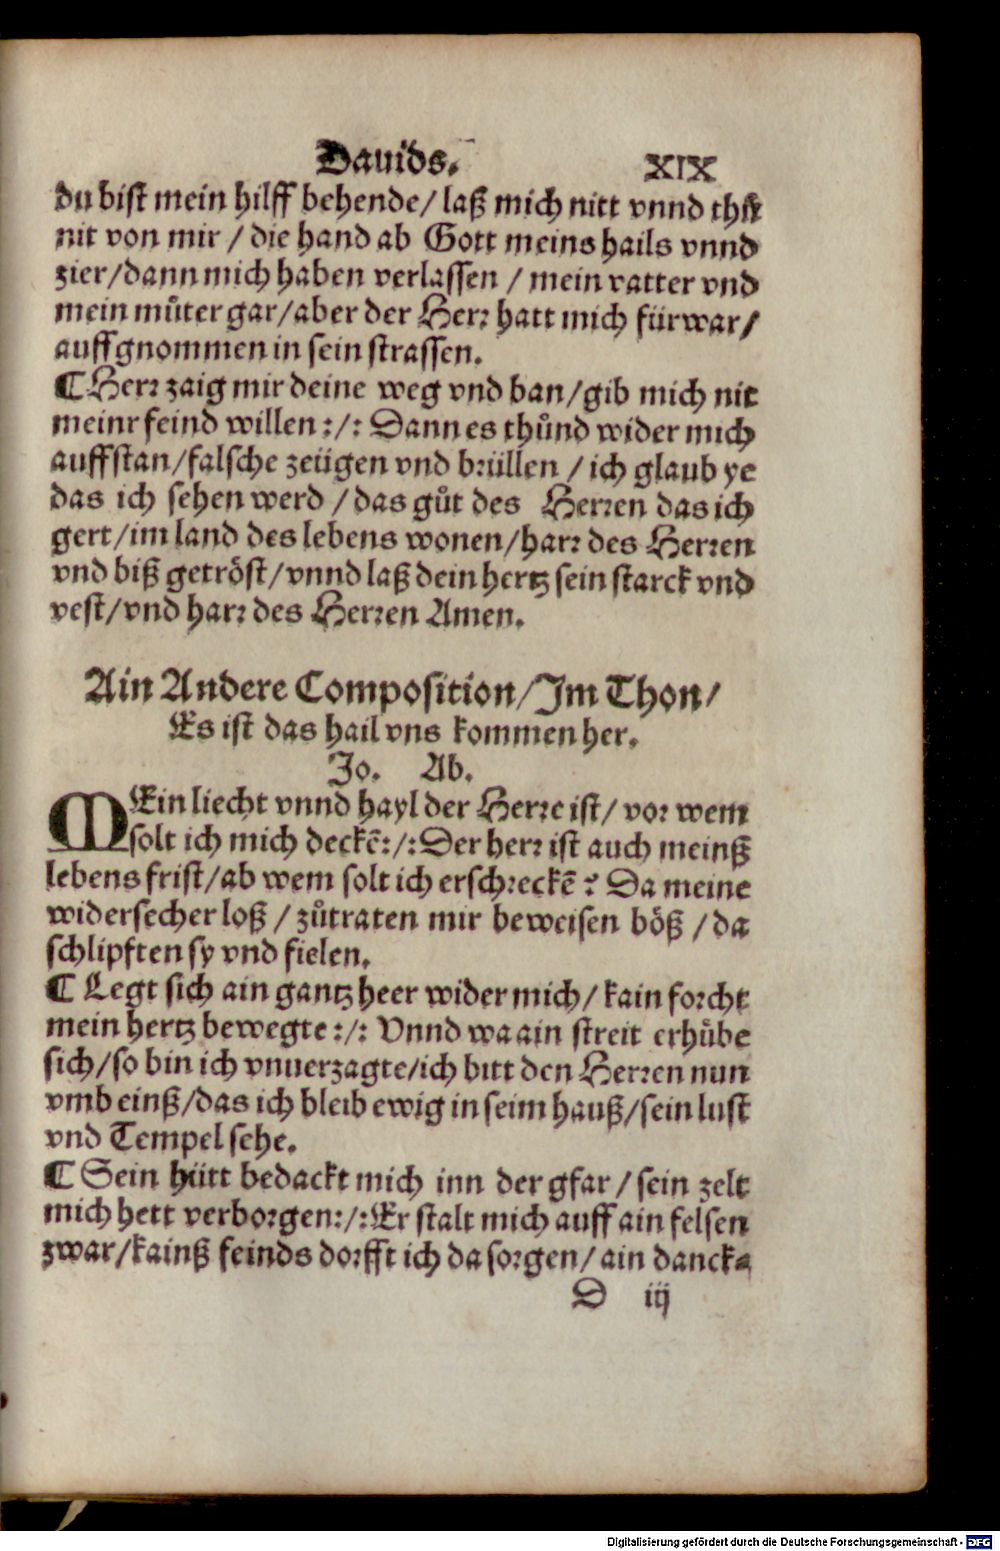 Dauids. XIX
du bist mein hilff behende/ laß mich nitt vnnd thů
nit von mir / die hand ab Gott meins hails vnnd
zier/dann mich haben verlassen / mein vatter vnd
mein můter gar/aber der Herr hatt mich fürwar/
auffgnommen in sein strassen.
¶ Herr zaig mir deine weg vnd ban/gib mich nit
meinr feind willen :/: Dann es thůnd wider mich
auffstan/falsche zeügen vnd brüllen / ich glaub ye
das ich sehen werd / das gůt des Herren das ich
gert/im land des lebens wonen/harr des Herren
vnd biß getröst/vnnd laß dein hertz sein starck vnd
vest/vnd harr des Herren Amen.
Ain Andere Composition/Im Thon/
Es ist das hail vns kommen her.
Jo. Ab.
MEin liecht vnnd hayl der Herre ist/ vor wem
solt ich mich deckē:/:Der herr ist auch meinß
lebens frist/ab wem solt ich erschreckē? Da meine
widersecher loß / zůtraten mir beweisen böß / da
schlipften sy vnd fielen.
¶ Legt sich ain gantz heer wider mich/ kain forcht
mein hertz bewegte :/: Vnnd wa ain streit erhůbe
sich/so bin ich vnuerzagte/ich bitt den Herren nun
vmb einß/das ich bleib ewig in seim hauß/sein lust
vnd Tempel sehe.
¶ Sein hütt bedackt mich inn der gfar / sein zelt
mich hett verborgen:/:Er stalt mich auff ain felsen
zwar/kainß feinds dorfft ich da sorgen/ ain danck⸗
D iij
Digitalisierung gefördert durch die Deutsche Forschungsgemeinschaft - DFG